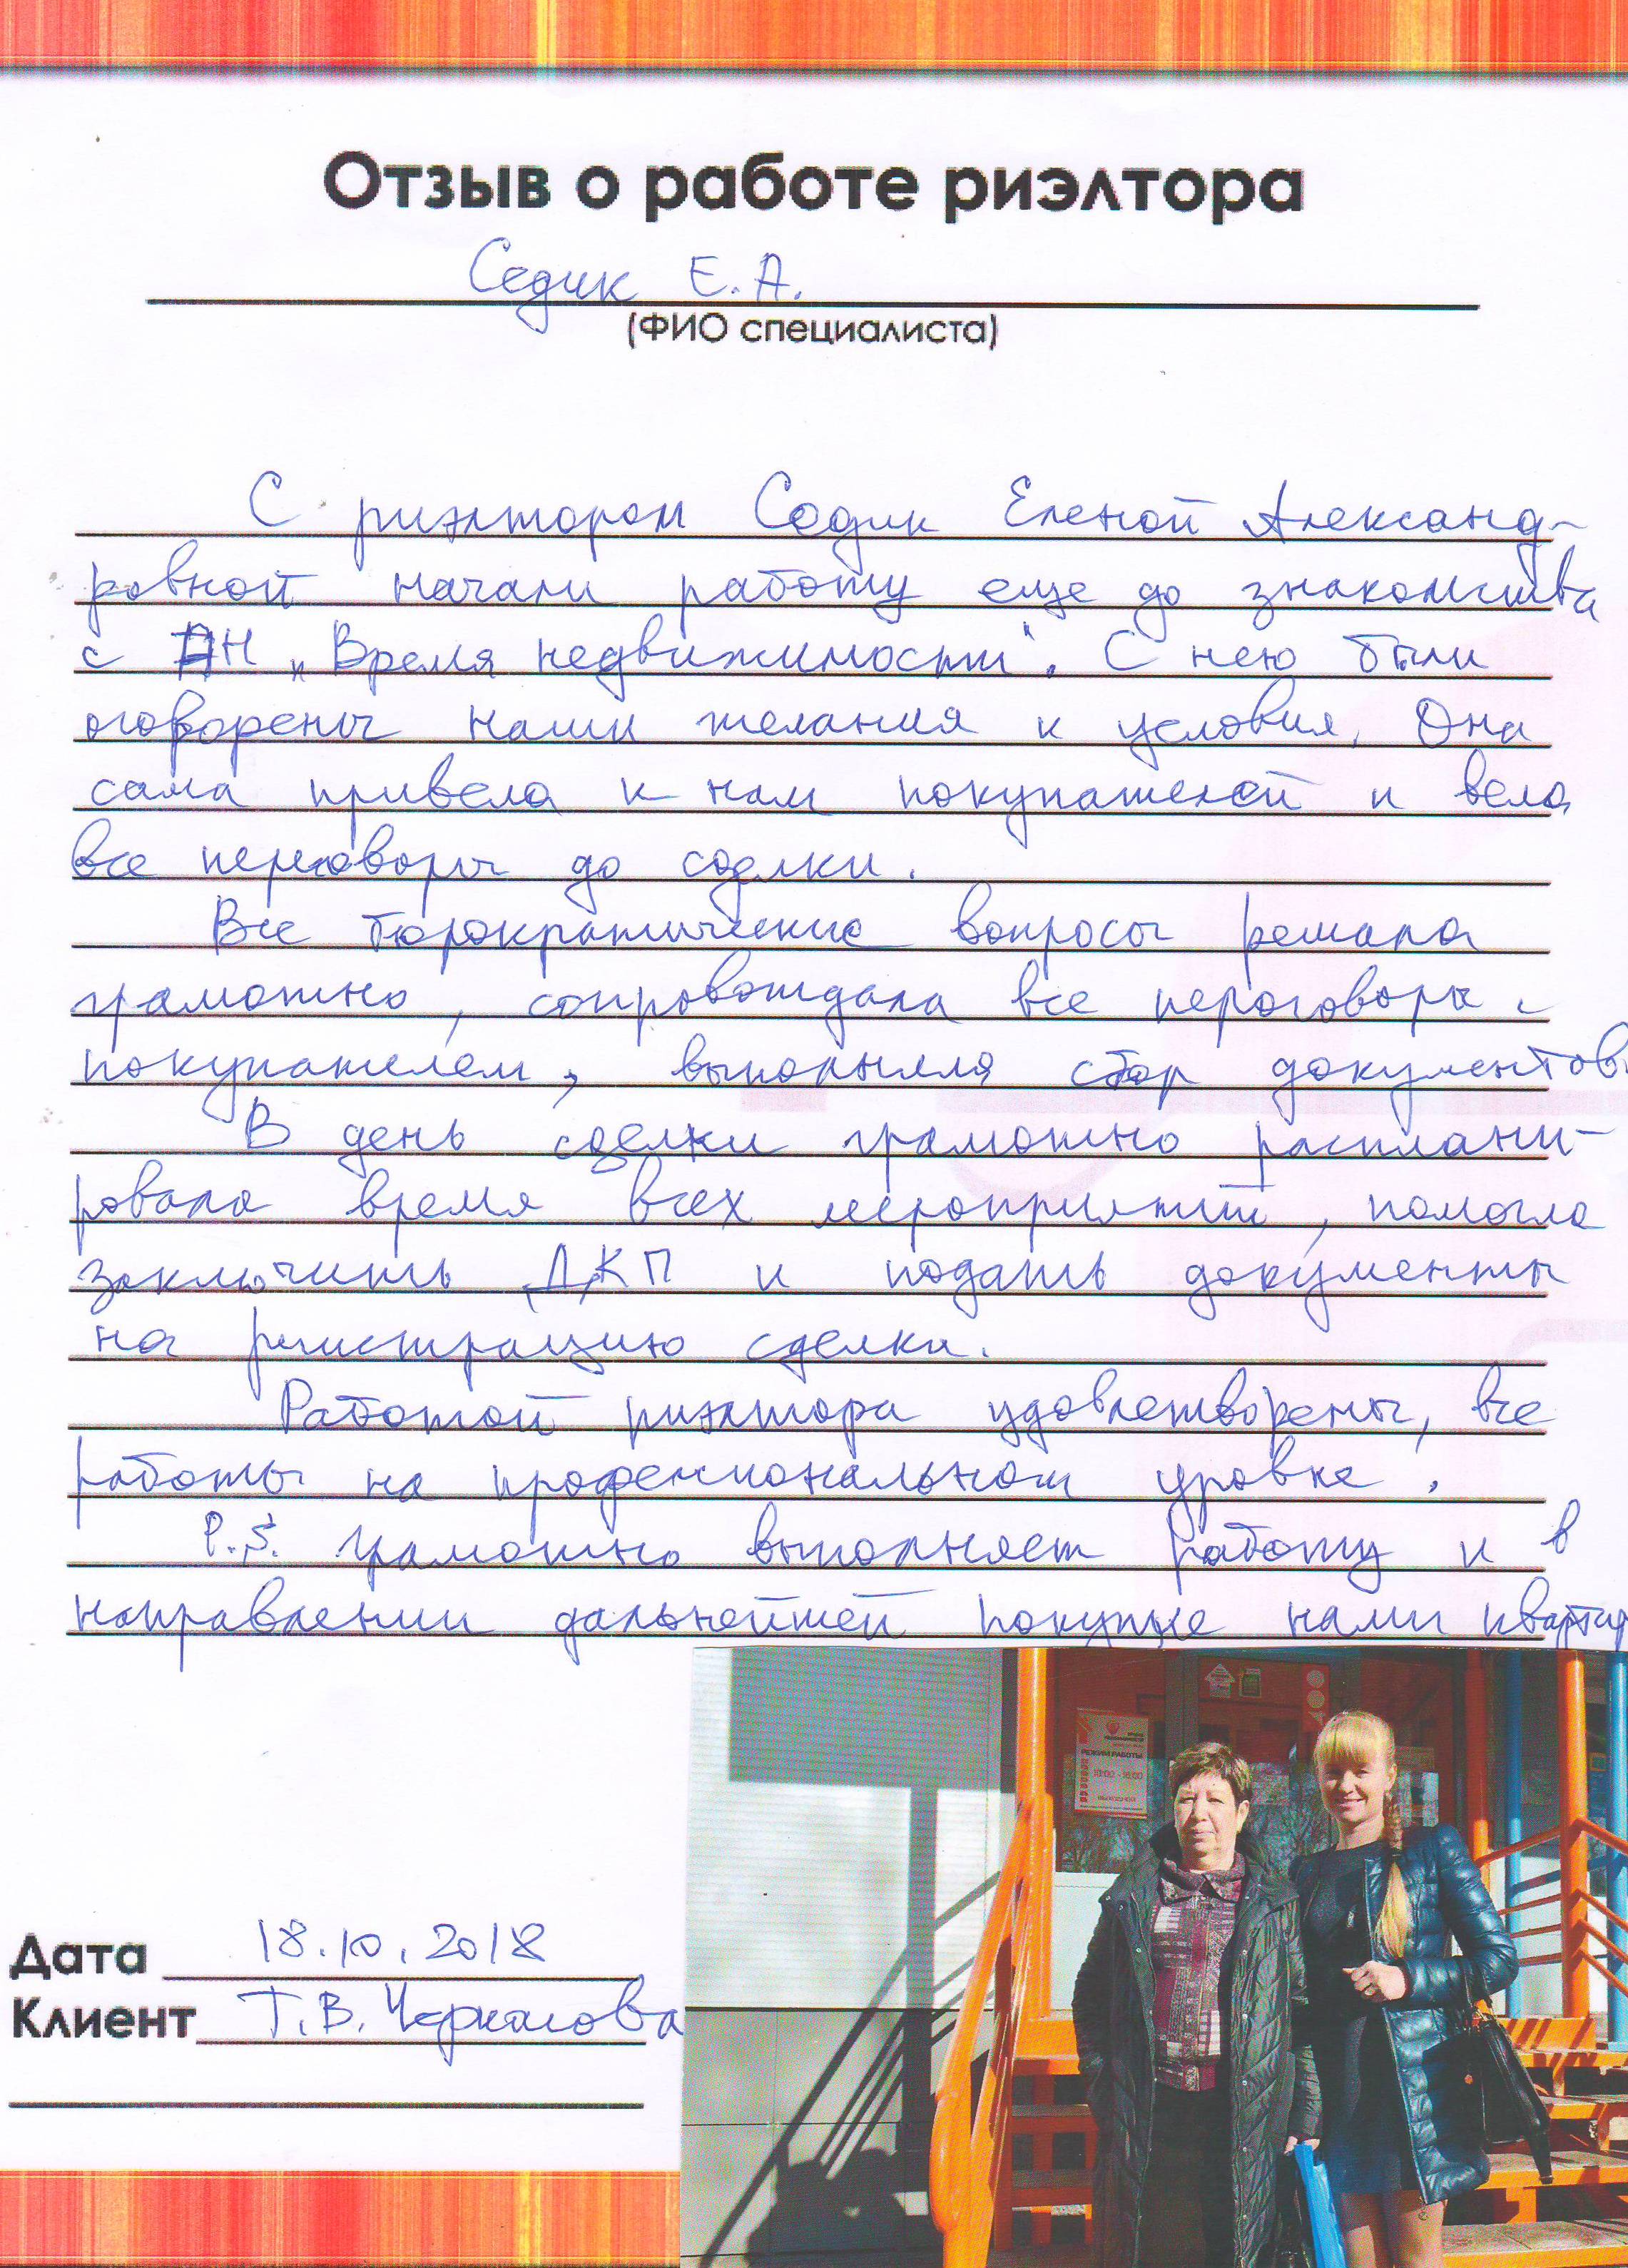 Отзыв о работе риэлтора
Седик Е.А.
(ФИО специалиста)
С риэлтором Седик Еленой Александ-
ровной начали работу еще до знакомства
с АН „Время недвижимости". С нею были
оговорены наши желания и условия. Она
сама привела к нам покупателей и вела
все переговоры до сделки.
Все бюрократические вопросы решала
грамотно, сопровождала все переговоры с
покупателем, выполняла сбор документов.
В день сделки грамотно распланиро-
ровала время всех мероприятий, помогла
заключить ДКП и подать документы
на регистрацию сделки.
Работой риэлтора удовлетворены, все
работы на профессиональном уровне.
P.S. грамотно выполняет работу и в
направлении дальнейшей покупке нами
РЕЖИМ РАБОТЫ
10:00 - 16:00
Дата 18.10.2018
Клиент Т.В. Черкасова